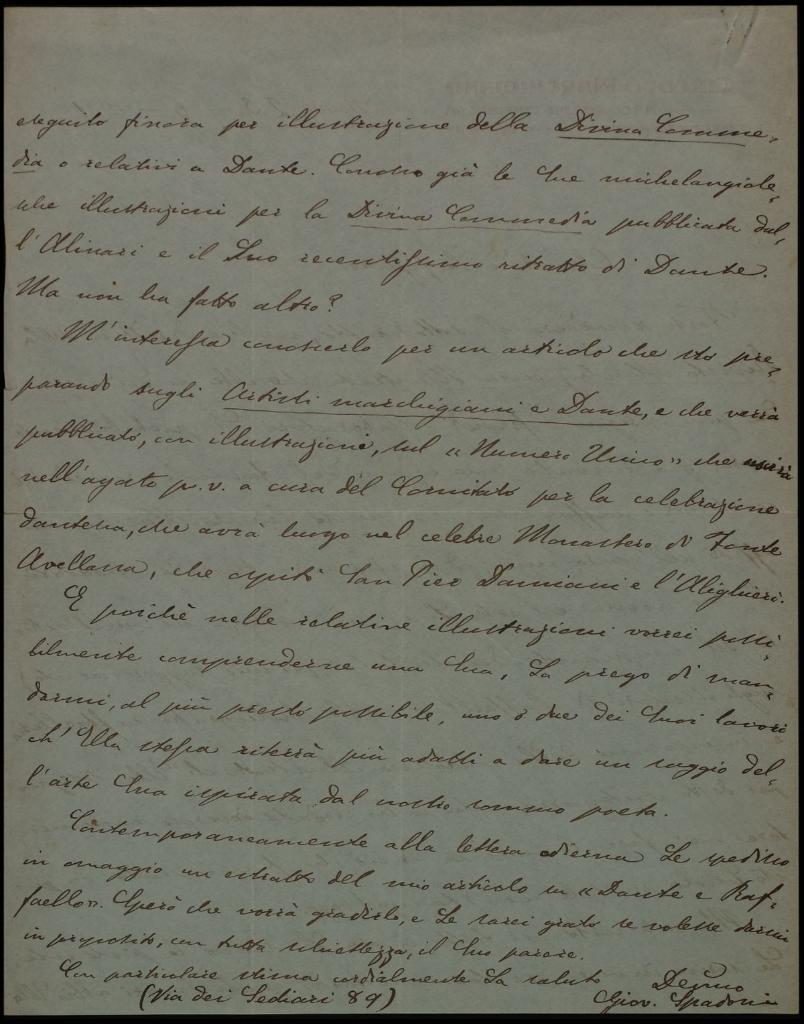 eseguito finora per illustrazione della Divina Comme-
dia o relativi a Dante. Conosco già le Sue michelangiole-
sche illustrazioni per la Divina Commedia pubblicata dal-
l'Alinari e il Suo recentissimo ritratto di Dante.
Ma non ha fatto altro?
M'interessa conoscerlo per un articolo che sto pre-
parando sugli Artisti marchigiani e Dante, e che verrà
pubblicato, con illustrazioni, sul "Numero Unico" che uscirà
nell'agosto p. v. a cura del Comitato per la celebrazione
dantesca, che avrà luogo nel celebre Monastero di Fonte
Avellana, che ospitò San Pier Damiani e l'Alighieri.
E poichè nelle relative illustrazioni vorrei possi-
bilmente comprenderne una Sua, La prego di man-
darmi, al più presto possibile, uno o due dei Suoi lavori
ch'Ella stessa riterrà più adatti a dare un saggio del-
l'arte Sua ispirata dal nostro sommo poeta.
Contemporaneamente alla lettera odierna Le spedisco
in omaggio un estratto del mio articolo su "Dante e Raf-
faello". Spero che vorrà gradirlo, e Le sarei grato se volesse darmi
in proposito, con tutta schiettezza, il Suo parere.
Con particolare stima cordialmente La saluto
Dev.mo
(Via dei Sediari 89) Giov. Spadoni